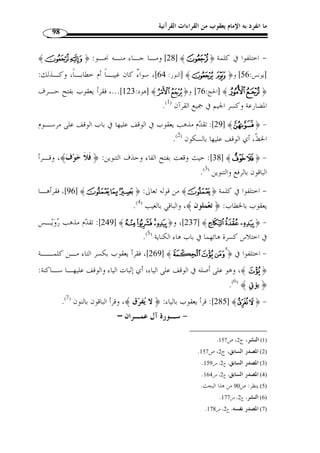 ما انفرد به الإمام يعقوب من القراءات القرآنية
98
- اختلفوا في كلمة ﴿ تُرْجَعُونَ ﴾ [28] ومـــا جـــاء منـــه نحـــو: ﴿ وَإِلَيْهِ تُرْجَعُونَ ﴾
[يونس:56] و﴿ وَيَوْمَ يُرْجَعُونَ ﴾ [النور: 64]، سواءٌ كان غيبـــاً أم خطابـــاً، وكـــذلك:
﴿ تُرْجَعُ الْأُمُورُ ﴾ [الحج: 76] و﴿ يُرْجَعُ الْأَمْرُ ﴾ [هود: 123]...، فقرأ يعقوب بفتح حـــرف
المضارعة وكسر الجيم في جميع القرآن (1).
- ﴿ فَسَوَّاهُنَّ ﴾ [29]: تقدّم مذهب يعقوب في الوقف عليها في باب الوقف على مرســـوم
الخطّ، أي الوقف عليها بالسكون (2).
- ﴿ فَلَا خَوْفٌ ﴾ [38]: حيث وقعت بفتح الفاء وحذف التنوين: ﴿ فَلَا خَوْفَ ﴾، وقـــرأ
الباقون بالرفع والتنوين (3).
- اختلفوا في كلمة ﴿ يَعْمَلُونَ ﴾ من قوله تعالى: ﴿ بَصِيرٌ بِمَا يَعْمَلُونَ ﴾ [96]، فقرأهـــا
يعقوب بالخطاب: ﴿ تعملون ﴾، والباقي بالغيب (4).
- ﴿ بِيَدِهِ عُقْدَةُ النِّكَاحِ ﴾ [237]، و﴿ بِيَدِهِ فَشَرِبُوا مِنْهُ ﴾ [249]: تقدّم مذهب رُوَيْـــس
في اختلاس كسرة هائهما في باب هاء الكناية (5).
- اختلفوا في كلمة ﴿ وَمَنْ يُؤْتَ الْحِكْمَةَ ﴾ [269]، فقرأ يعقوب بكسر التاء مـــن كلمـــة
﴿ يُؤْتَ ﴾، وهو على أصله في الوقف على الياء، أي إثبات الياء والوقف عليهـــا ســـاكنة:
﴿ يؤتي ﴾ (6).
- ﴿ لَا نُفَرِّقُ ﴾ [285]: قرأ يعقوب بالياء: ﴿ لا يُفَرِّقُ ﴾، وقرأ الباقون بالنون (7).
- ســـورة آل عمـــران -
(1) النشر، ج2، ص157.
(2) المصدر السابق، ج2، ص157.
(3) المصدر السابق، ج2، ص159.
(4) المصدر السابق، ج2، ص164.
(5) ينظر: ص90 من هذا البحث.
(6) النشر، ج2، ص177.
(7) المصدر نفسه، ج2، ص178.